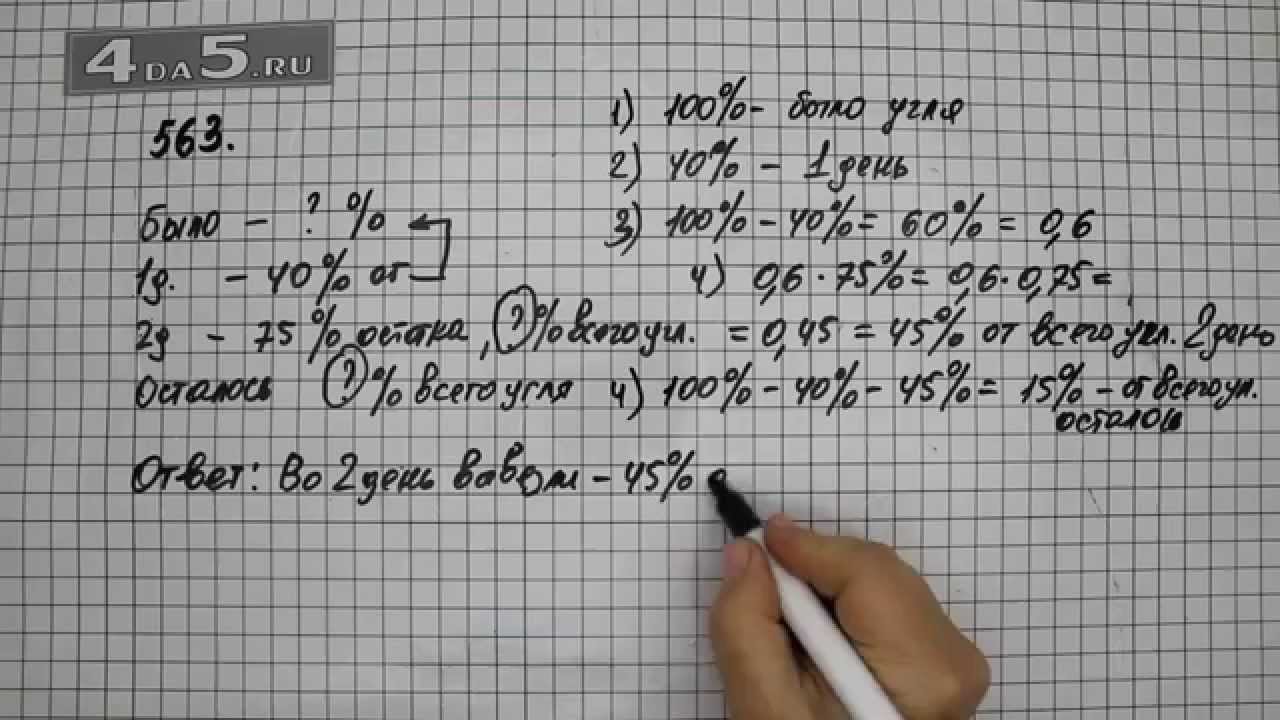 4DA5.RU
563.
было - ? %
1д. - 40% от
2д - 75% остатка, ? % всего угл.
Осталось ? % всего угля
1) 100% - было угля
2) 40% - 1 день
3) 100% - 40% = 60% = 0,6
4) 0,6 · 75% = 0,6 · 0,75 =
= 0,45 = 45% от всего угл. 2 день
4) 100% - 40% - 45% = 15% - от всего уг.
осталось
Ответ: Во 2 день - 45%